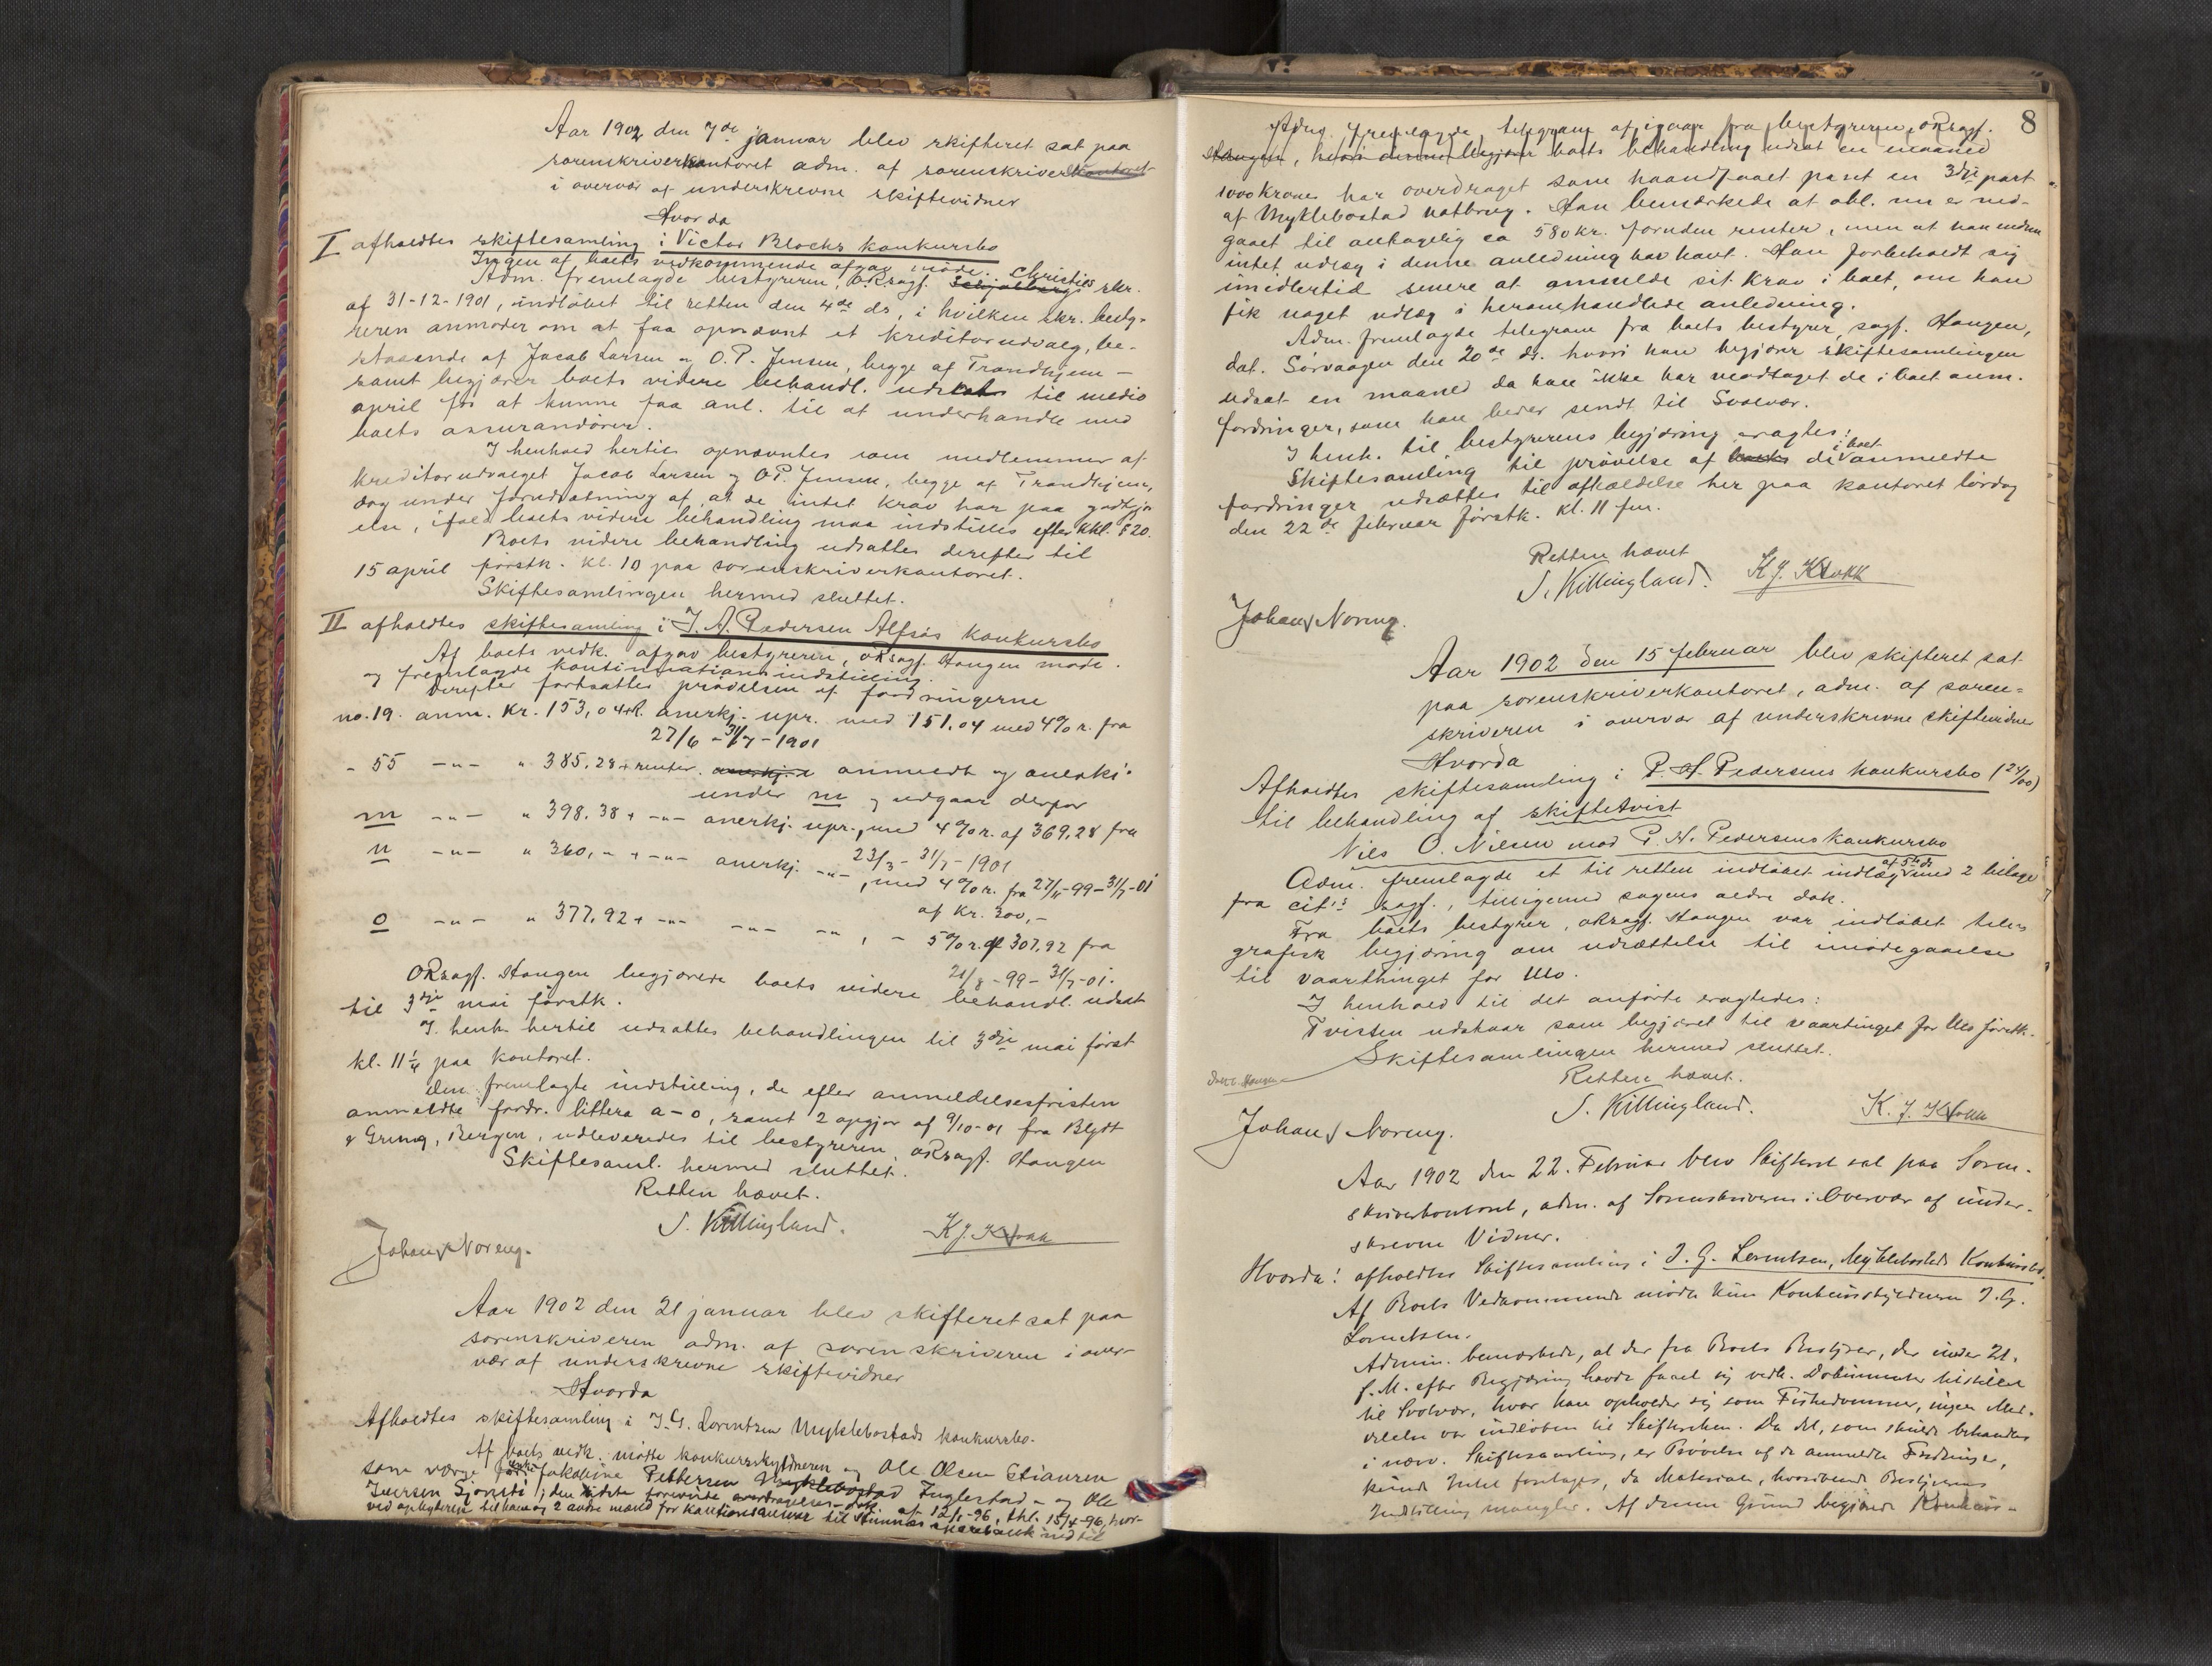 Aar 1902 den 7de januar blev skifteret sat paa
sorenskriverkontoret adm. af sorenskriver
i overvær af underskrevne skiftevidner
Hvorda
I afholdtes skiftesamling i Victor Blochs konkursbo
Ingen af boets vedkommende afgav møde.
Adm. fremlagde bestyreren, ORsagf. Christies skr.
af 31-12-1901, indløbet til retten den 4de ds, i hvilken skr. besty-
reren anmoder om at faa opnævnt et kreditorudvalg, be-
staaende af Jacob Larsen og O. P. Jensen, begge af Trondhjem –
samt begjærer boets videre behandl. udsat til medio
april for at kunne faa anl. til at underhandle med
boets assurandører.
I henhold hertil opnævntes som medlemmer af
kreditorudvalget Jacob Larsen og O.P. Jensen, begge af Trondhjem,
dog under forudsætning af, at de intet krav har paa godtgjø-
else, ifald boets videre behandling maa indstilles efter kkl. § 20.
Boets videre behandling udsattes derefter til
15 april førstk. kl. 10 paa sorenskriverkontoret.
Skiftesamlingen hermed sluttet.
II afholdtes skiftesamling i J. A. Pedersen Alfsøs konkursbo
Af boets vedk. afgav bestyreren, ORsagf. Hangen møde.
og fremlagde kontinuationsindstilling.
Derefter fortsattes prøvelsen af fordringerne
no. 19. anm. kr. 153,04+r. anerkj. upr. med 151.04 med 4% r. fra
27/6 – 31/7 – 1901
- 55 -"- " 385.28+renter. anmeldt og anerkj.
under m og udgaar derfor
m -"- " 398.38 + -"- anerkj. upr., med 4% r. af 369.28 fra
23/3 – 31/7 – 1901
n -"- " 360,- + -"- anerkj. -"-, med 4% r. fra 27/11-99 – 31/7-01
af kr. 300,-
o -"- " 377.92 + -"- -"- -"-, - 5% r. af 307.92 fra
21/8 – 99 – 31/7-01.
ORsagf. Hangen begjærede boets videre behandl. udsat
til 3dje mai førstk.
I henh. hertil udsattes behandlingen til 3dje mai først
kl. 11 1/4 paa kontoret.
Den fremlagte indstilling, de efter anmeldelsesfristen
anmeldte fordr. littera a–o, samt 2 opgjør af 9/10-01 fra Blytt
& Grung, Bergen, udleveredes til bestyreren, ORsagf. Hangen
Skiftesaml. hermed sluttet.
Retten hævet.
S. Killingland. K J. Krokk
Johan Noreng.
Aar 1902 den 21 januar blev skifteret sat paa
sorenskriveren adm. af sorenskriveren i over-
vær af underskrevne skiftevidner
Hvorda
Afholdtes skiftesamling i J. G. Lorentzen Myklebostads konkursbo.
Af boets vedk. mødte konkursskyldneren og Ole Olsen Stiansen
som værge for enke Jakobine Pettersen Myklebostad Fuglestad – og Ole
Iversen Sjonsti; den sidste foreviste overdragelses-dok. af 12/1-96, thl. 15/4-96, hvor-
ved opbyderen til ham og 2 andre mænd for kautionsansvar til Stamnes sparebank indtil
8
Adm. fremlagde telegram af igaar fra bestyreren, ORsagf.
Hangen, hvori denne begjærer boets behandling udsat en maaned
1000 kroner har overdraget som haandfaaet pant en 3die part
af Myklebostad notbrug. Han bemærkede at obl. nu er ned-
gaaet til antagelig ca 580 kr. foruden renter, men at han endnu
intet udlæg i denne anledning har havt. Han forbeholdt sig
imidlertid senere at anmelde sit krav i boet, om han
fik noget udlæg i heromhandlede anledning.
Adm. fremlagde telegram fra boets bestyrer, sagf. Hangen,
dat. Sørvaagen den 20de ds. hvori han begjærer skiftesamlingen
udsat en maaned da han ikke har modtaget de i boet anm.
fordringer, som han beder sendt til Svolvær.
I henh. til bestyrerens begjæring eragtes:
Skiftesamling til prøvelse af de i boet anmeldte
fordringer udsættes til afholdelse her paa kontoret lørdag
den 22de februar førstk. kl. 11 fm.
Retten hævet
S. Killingland. K J. Krokk
Johan Noreng.
Aar 1902 den 15 februar blev skifteret sat
paa sorenskriverkontoret, adm. af soren-
skriveren i overvær af underskrevne skiftevidner
Hvorda
Afholdtes skiftesamling i P. H. Pedersens konkursbo (24/00)
til behandling af skiftetvist
Nils O. Nilsen mod P. H. Pedersens konkursbo
Adm. fremlagde et til retten indløbet indlæg af 5te ds med 2 bilage
fra cit's sagf., tilligemed sagens ældre dok.
Fra boets bestyrer, oRsagf. Hangen var indløbet tele-
grafisk begjæring om udsættelse til imødegaaelse
til vaarthinget for Mo.
I henhold til det anførte eragtedes:
Tvisten udstaar som begjæret til vaartinget for Mo førstk.
Skiftesamlingen hermed sluttet.
Retten hævet.
S. Killingland. K. J. Krokk
Johan Noreng.
Aar 1902 den 22. Februar blev Skifteret sat paa Soren-
skriverkontoret, adm. af Sorenskriveren i Overvær af under-
skrevne Vidner.
Hvorda: afholdtes Skiftesamling i J. G. Lorentsen, Myklebostads Konkursbo.
Af Boets Vedkommende mødte kun Konkursskyldneren J. G.
Lorentsen.
Admin. bemærkede, at der fra Boets Bestyrer, der under 21.
f. M. efter Begjæring havde faaet sig vedk. Dokumenter tilstillet
til Svolvær, hvor han opholder sig som Fiskedommer, ingen Med-
delelse var indløben til Skifteretten. Da det, som skulde behandles
i nærv. Skiftesamling, er Prøvelse af de anmeldte Fordringer,
kunde Intet foretages, da Materialet, hvoriblandt Bestyrerens
Indstilling mangler. Af denne Grund begjærede Konkurs-